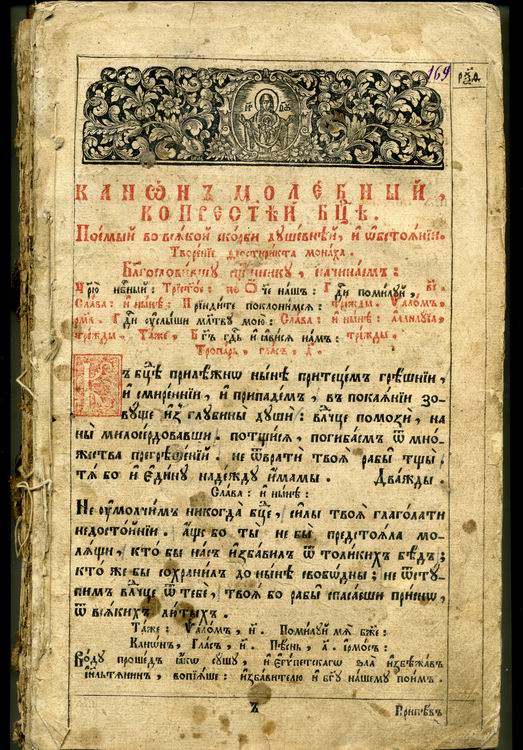 169
р҃ѯ҃ѳ
КАНѠ́НЪ МОЛЕ́БНЫЙ,
КО ПРЕСТ҃ѢЙ БЦ҃Ѣ.
Пое́мый во всѧ́кой ско́рби дꙋше́внѣй, и҆ ѡ҆бстоѧ́нїи.
Творе́нїе мона́ха.
Бл҃гослови́вшꙋ сщ҃е́нникꙋ, начина́емъ:
Цр҃ю̀ нбⷭ҇ный: Трист҃о́е: по Ѻ҆́ч҃е на́шъ: Гдⷭ҇и поми́лꙋй, в҃і.
Сла́ва: и҆ ны́нѣ: Прїиди́те поклони́мсѧ: три́жды. Ѱало́мъ,
рм҃в. Гдⷭ҇и ᲂу҆слы́ши мл҃твꙋ мою̀: Сла́ва: и҆ ны́нѣ: А҆ллилꙋ́їа,
три́жды. Та́же, Бг҃ъ гдⷭ҇ь и҆ ꙗ҆ви́сѧ на́мъ: три́жды.
Тропа́рь, гла́съ, д҃.
Къ бц҃ѣ прилѣ́жнѡ ны́нѣ притеце́мъ грѣ́шнїи,
и҆ смире́ннїи, и҆ припаде́мъ, въ покаѧ́нїи зо-
вꙋ́ще и҆з̾ глꙋбины̀ дꙋшѝ: влⷣчце помозѝ, на
ны̀ милосе́рдовавши. потщи́сѧ, погиба́емъ ѿ мно́-
жества прегрѣше́нїй. не ѿвратѝ твоѧ̑ рабы̑ тщы̀.
тѧ́ бо и҆ є҆ди́нꙋ наде́ждꙋ и҆́мамы. Два́жды.
Сла́ва: и҆ ны́нѣ:
Не ᲂу҆молчи́мъ никогда̀ бц҃е, си̑лы твоѧ̑ глаго́лати
недосто́йнїи. а҆́ще бо ты̀ не бы̀ предстоѧ́ла мо-
лѧ́щи, кто́ бы на́съ и҆зба́вилъ ѿ толи́кихъ бѣ́дъ:
кто́ же бы сохрани́лъ до ны́нѣ свобѡ́дны: не ѿстꙋ́-
пимъ влⷣчце ѿ тебє̀, твоѧ̑ бо рабы̑ спаса́еши при́снѡ,
ѿ всѧ́кихъ лю́тыхъ.
Та́же: Ѱало́мъ, н҃. Поми́лꙋй мѧ̀ бж҃е:
Кано́нъ, Гла́съ, и҃. Пѣ́снь, а҃. І҆рмо́съ:
Во́дꙋ проше́дъ ꙗ҆́кѡ сꙋ́шꙋ, и҆ є҆гѵ́петскагѡ ѕла̀ и҆збѣжа́въ
і҆и҃льтѧнинъ, вопїѧ́ше: и҆зба́вителю и҆ бг҃ꙋ на́шемꙋ пои́мъ.